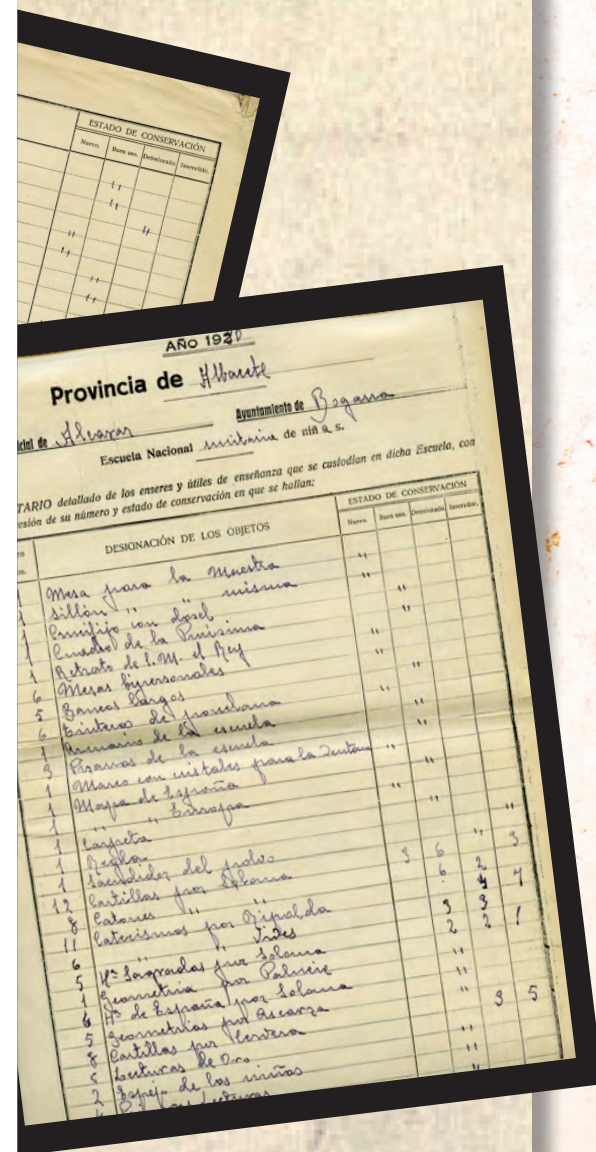 ESTADO DE CONSERVACIÓN
Nuevo. Buen uso. Deteriorado. Inservible.
AÑO 1920
Provincia de Albacete
icial de Alcaraz Ayuntamiento de Bogarra
Escuela Nacional unitaria de niñas.
TARIO detallado de los enseres y útiles de enseñanza que se custodian en dicha Escuela, con
resión de su número y estado de conservación en que se hallan:
DESIGNACIÓN DE LOS OBJETOS ESTADO DE CONSERVACIÓN
Nuevo. Buen uso. Deteriorado. Inservible.
1 Mesa para la Maestra "
1 Sillón " " misma "
1 Crucifijo con dosel "
1 Cuadro de la Purísima "
1 Retrato de S. M. el Rey "
6 Mesas bipersonales "
5 Bancos largos "
6 Tinteros de porcelana "
1 Armario de la escuela "
3 Pizarras de la escuela "
1 Marco con cristales para la ventana "
1 Mapa de España "
1 " " Europa "
1 Carpeta "
1 Regla "
1 Sacudidor del polvo "
12 Cartillas por Solana 3 6 3
8 Catones " " 6 2
11 Catecismos por Ripalda 4 7
6 " " Vives 3 3
5 Hª Sagradas por Solana 2 2 1
1 Geometria por Paluzie "
6 Hª de España por Solana "
5 Geometrias por Ascarza "
8 Cartillas por Cervera 3 5
Lecturas de Oro "
2 Espejo de las niñas "